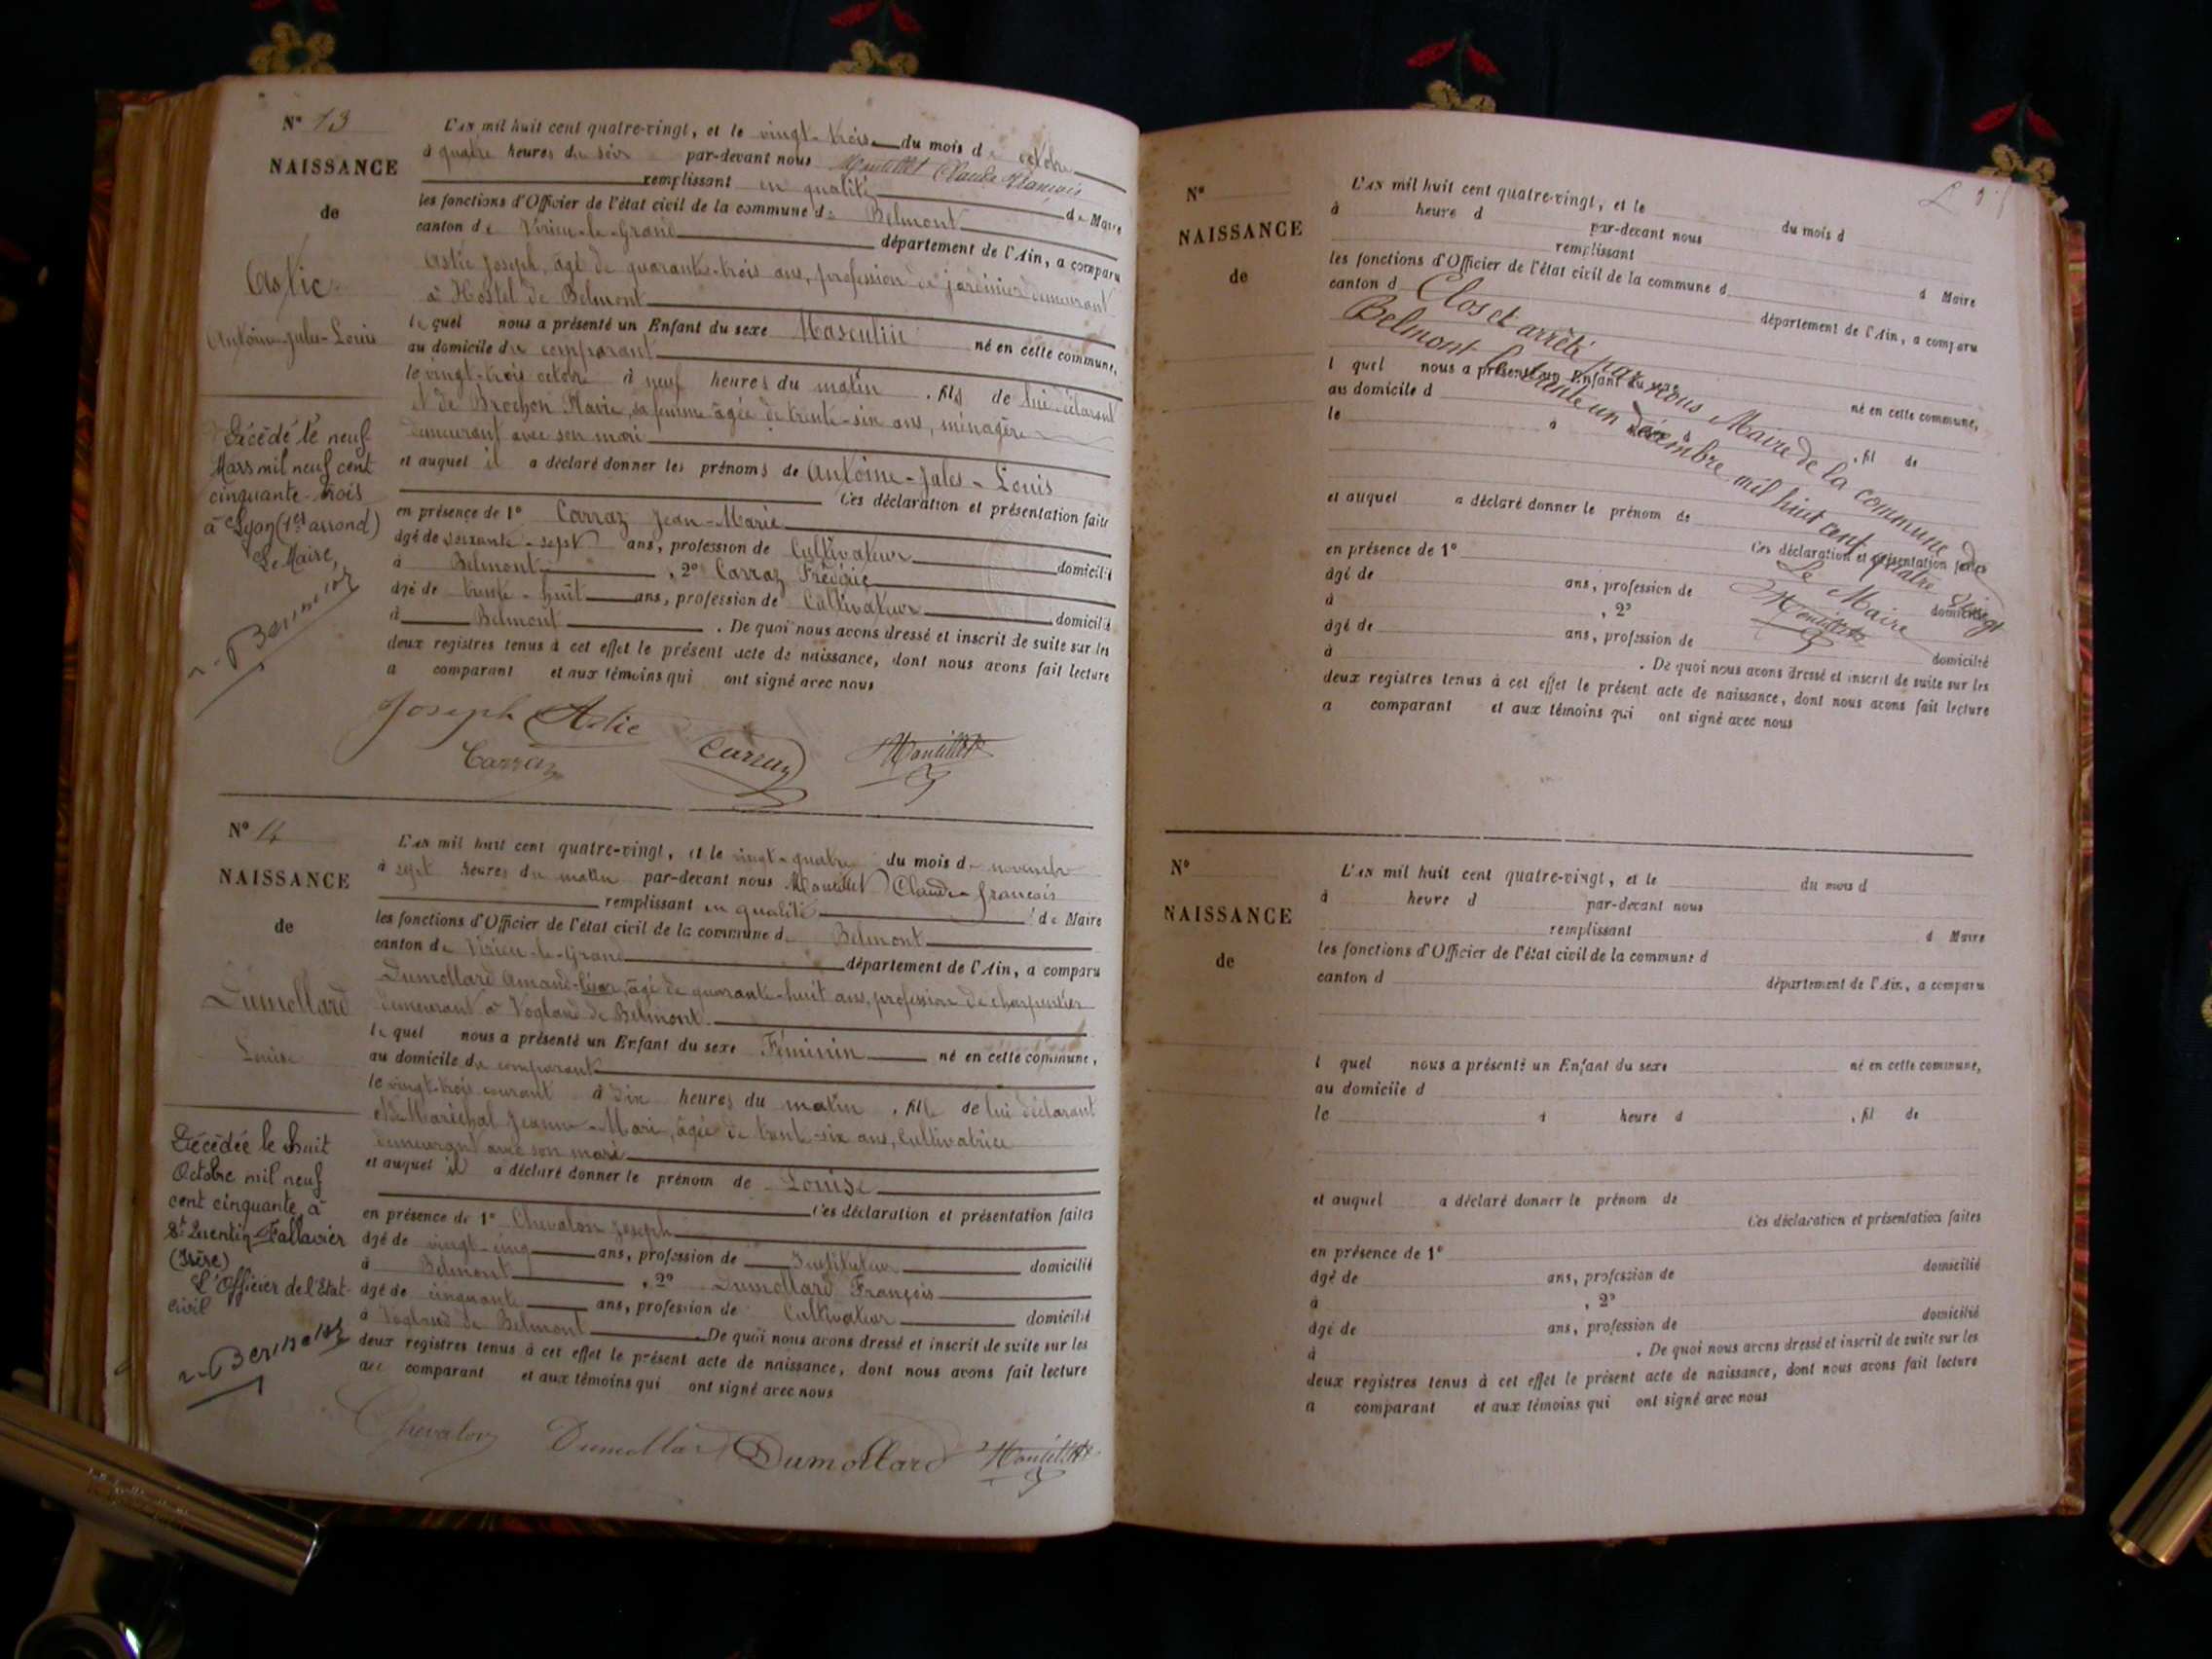 N° 13
NAISSANCE
de
Astic
Antoine-Jules-Louis
Décédé le neuf
Mars mil neuf cent
cinquante-trois
à Lyon (1er arrond)
Le Maire,
L'AN mil huit cent quatre-vingt, et le vingt-trois du mois de octobre
à quatre heures du soir par-devant nous Montillet Claude François
remplissant en qualité de Maire
les fonctions d'Officier de l'état civil de la commune de Belmont
canton de Virieu-le-Grand département de l'Ain, a comparu
Astic Joseph, âgé de quarante-trois ans, profession de jardinier demeurant
à Hostel de Belmont
lequel nous a présenté un Enfant du sexe Masculin né en cette commune,
au domicile du comparant
le vingt-trois octobre à neuf heures du matin, fils de lui déclarant
et de Brochon Flavie, sa femme âgée de trente-six ans, ménagère
demeurant avec son mari
et auquel il a déclaré donner les prénoms de Antoine-Jules-Louis
Ces déclaration et présentation faites
en présence de 1° Carraz Jean-Marie
âgé de soixante-sept ans, profession de Cultivateur domicilié
à Belmont, 2° Carraz Frédéric
âgé de trente-huit ans, profession de Cultivateur domicilié
à Belmont. De quoi nous avons dressé et inscrit de suite sur les
deux registres tenus à cet effet le présent acte de naissance, dont nous avons fait lecture
a comparant et aux témoins qui ont signé avec nous
Joseph Astic
Carraz Carraz Montillet
N° 14
NAISSANCE
de
Dumollard
Louise
Décédée le huit
Octobre mil neuf
cent cinquante, à
St Quentin-Fallavier
(Isère)
L'Officier de l'Etat-
civil
L'AN mil huit cent quatre-vingt, et le vingt-quatre du mois de novembre
à sept heures du matin par-devant nous Montillet Claude-François
remplissant en qualité de Maire
les fonctions d'Officier de l'état civil de la commune de Belmont
canton de Virieu-le-Grand département de l'Ain, a comparu
Dumollard Amand- âgé de quarante-huit ans, profession de charpentier
demeurant à Vogland de Belmont.
lequel nous a présenté un Enfant du sexe Féminin né en cette commune,
au domicile du comparant
le vingt-trois courant à dix heures du matin, fille de lui déclarant
et de Maréchal Jeanne-Marie, âgée de trente-six ans, Cultivatrice
demeurant avec son mari
et auquel il a déclaré donner le prénom de Louise
Ces déclaration et présentation faites
en présence de 1° Chevalon Joseph
âgé de vingt-cinq ans, profession de Instituteur domicilié
à Belmont, 2° Dumollard François
âgé de cinquante ans, profession de Cultivateur domicilié
à Vogland de Belmont. De quoi nous avons dressé et inscrit de suite sur les
deux registres tenus à cet effet le présent acte de naissance, dont nous avons fait lecture
au comparant et aux témoins qui ont signé avec nous
Chevalon Dumollard Dumollard Montillet
N°
NAISSANCE
de
L'AN mil huit cent quatre-vingt, et le du mois d
à heure d par-devant nous
remplissant d Maire
les fonctions d'Officier de l'état civil de la commune d
canton d département de l'Ain, a comparu
l quel nous a présenté un Enfant du sexe né en cette commune,
au domicile d
le à heure d , fil de
et auquel a déclaré donner le prénom de
Ces déclaration et présentation faites
en présence de 1° domicilié
âgé de ans, profession de
à , 2°
âgé de ans, profession de domicilié
à . De quoi nous avons dressé et inscrit de suite sur les
deux registres tenus à cet effet le présent acte de naissance, dont nous avons fait lecture
a comparant et aux témoins qui ont signé avec nous
Clos et arrêté par nous Maire de la commune de
Belmont le trente un décembre mil huit cent quatre vingt
Le Maire
Montillet
N°
NAISSANCE
de
L'AN mil huit cent quatre-vingt, et le du mois d
à heure d par-devant nous
remplissant d Maire
les fonctions d'Officier de l'état civil de la commune d
canton d département de l'Ain, a comparu
l quel nous a présenté un Enfant du sexe né en cette commune,
au domicile d
le à heure d , fil de
et auquel a déclaré donner le prénom de
Ces déclaration et présentation faites
en présence de 1°
âgé de ans, profession de domicilié
à , 2°
âgé de ans, profession de domicilié
à . De quoi nous avons dressé et inscrit de suite sur les
deux registres tenus à cet effet le présent acte de naissance, dont nous avons fait lecture
a comparant et aux témoins qui ont signé avec nous